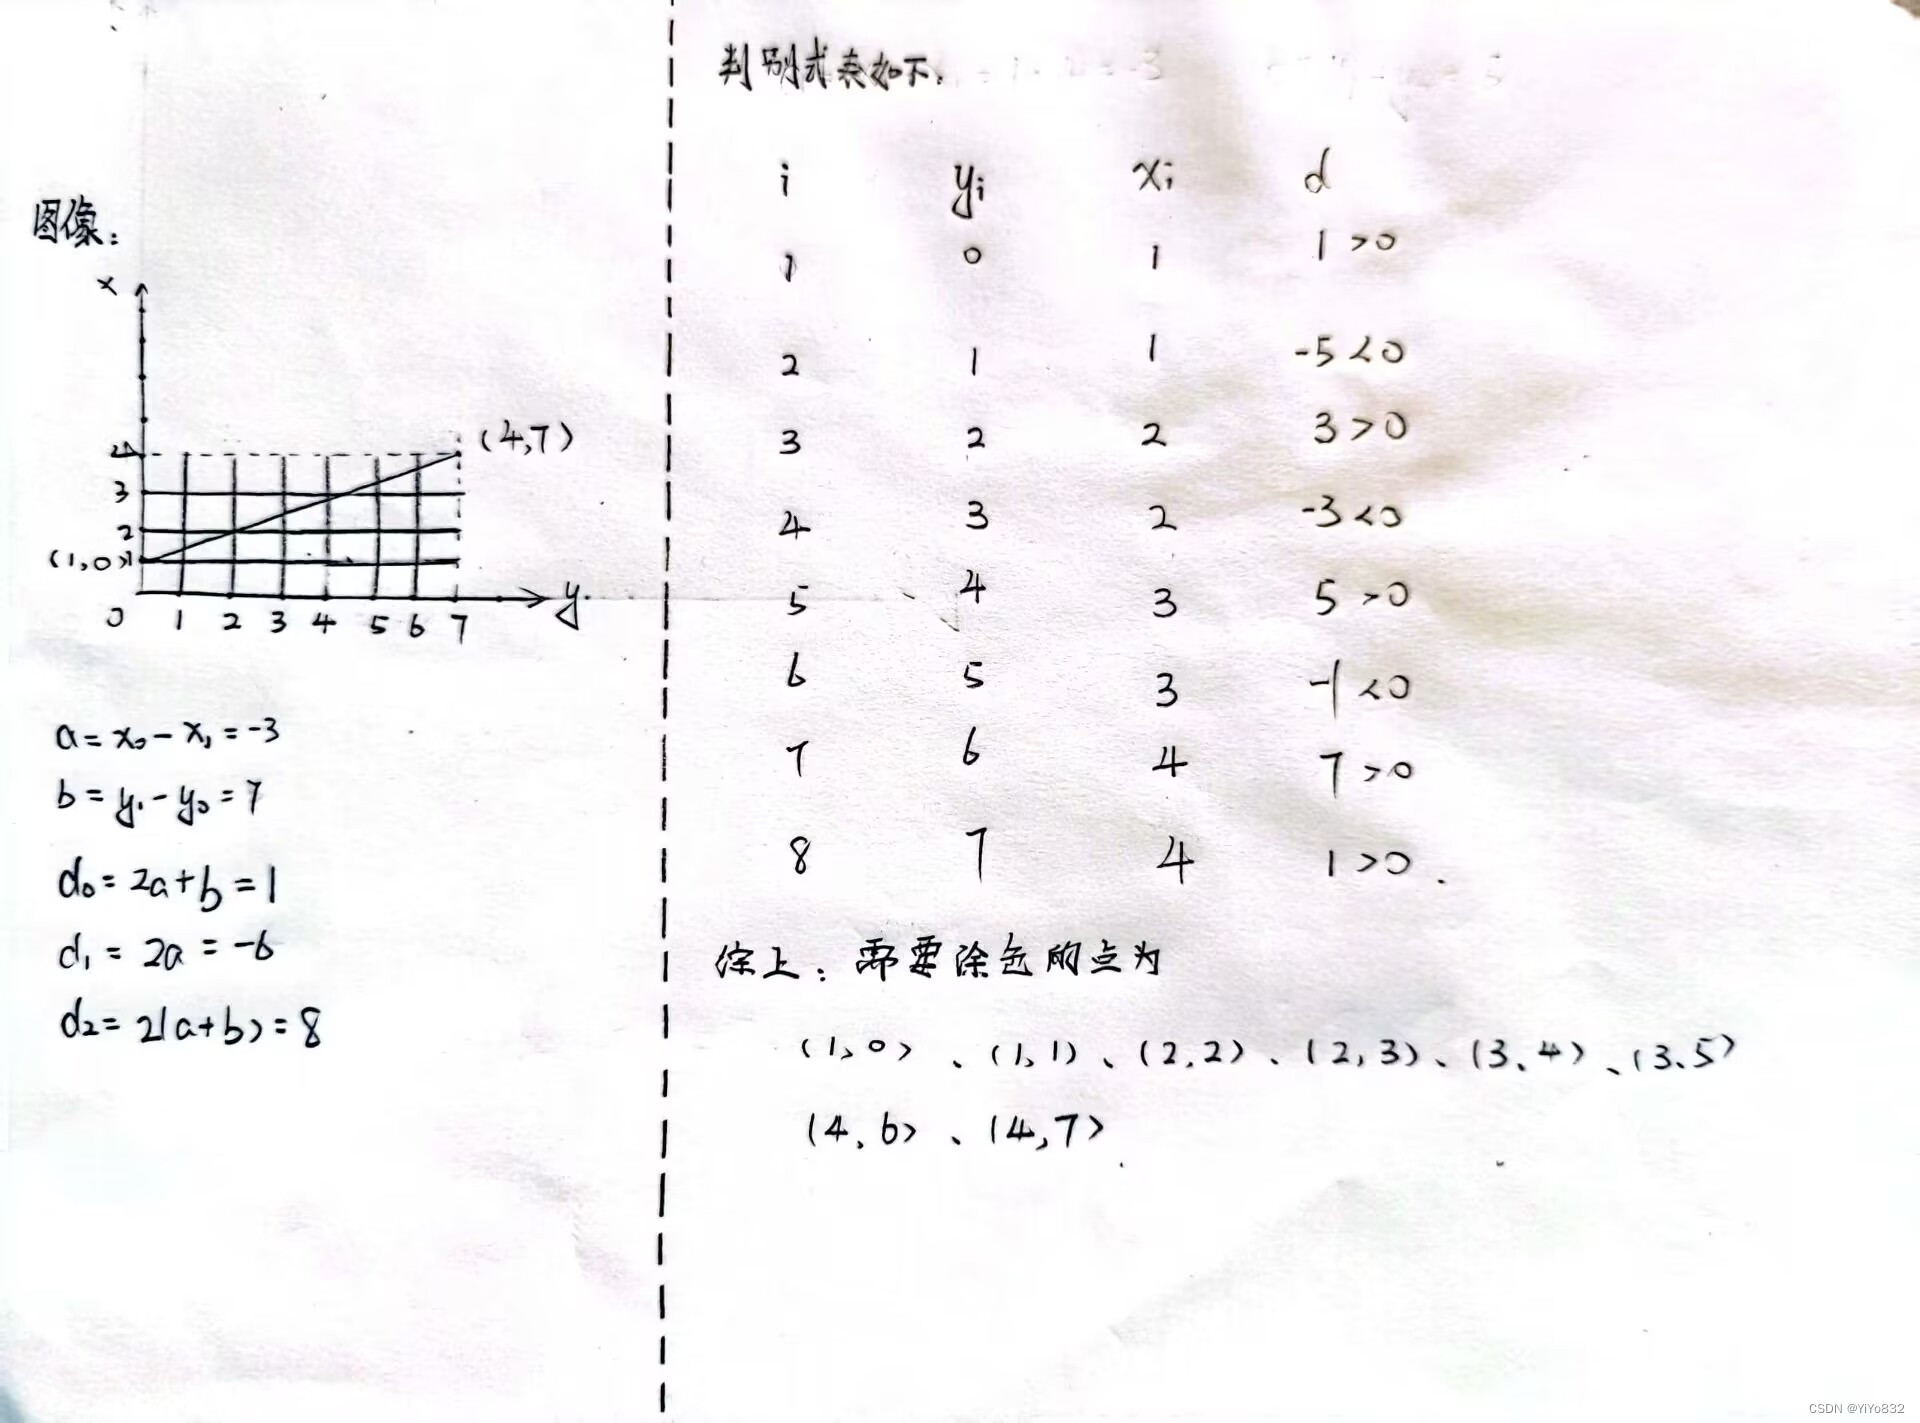 图像:
x
4
(4,7)
3
2
(1,0) 1
y
0 1 2 3 4 5 6 7
a = x₀ - x₁ = -3
b = y₁ - y₀ = 7
d₀ = 2a + b = 1
d₁ = 2a = -6
d₂ = 2(a+b) = 8
判别式表如下.
i yi xi d
1 0 1 1 >0
2 1 1 -5 <0
3 2 2 3 >0
4 3 2 -3 <0
5 4 3 5 >0
6 5 3 -1 <0
7 6 4 7 >0
8 7 4 1 >0.
综上: 需要涂色的点为
(1,0)、(1,1)、(2,2)、(2,3)、(3、4)、(3、5)
(4,6)、(4,7)
CSDN @YiYo832